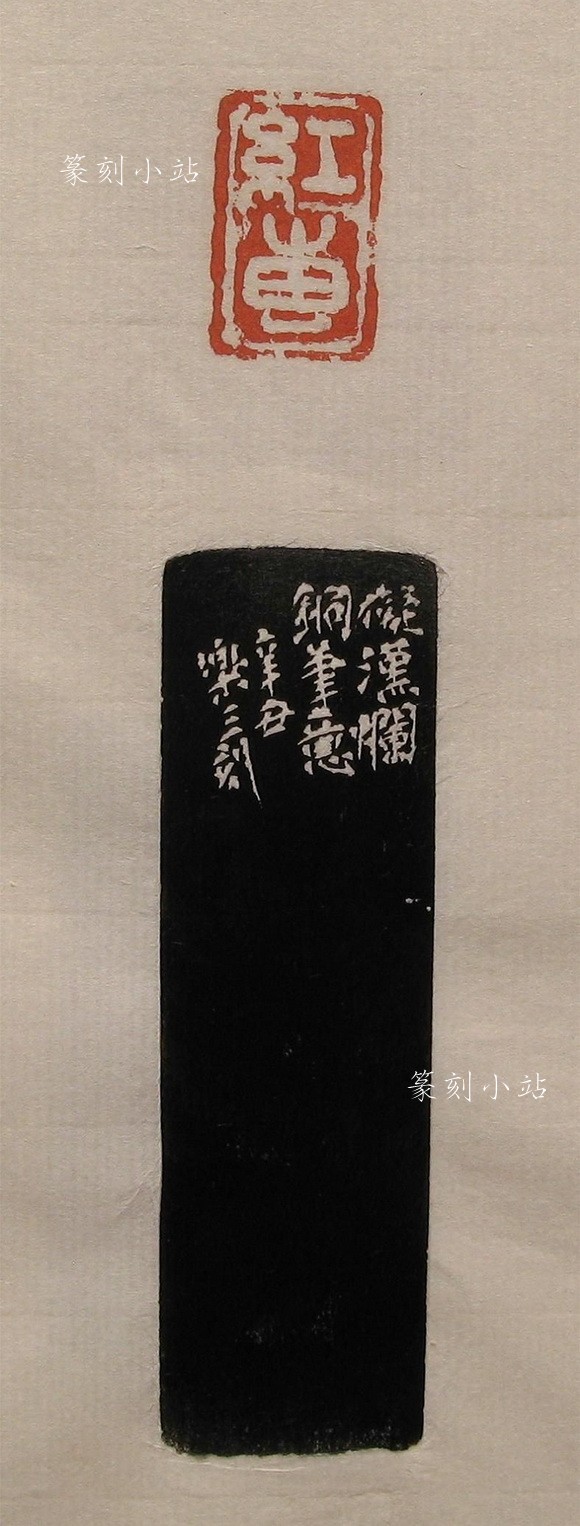 篆刻小站
紅
擬漢爛
銅筆意
辛丑
樂三刻
篆刻小站